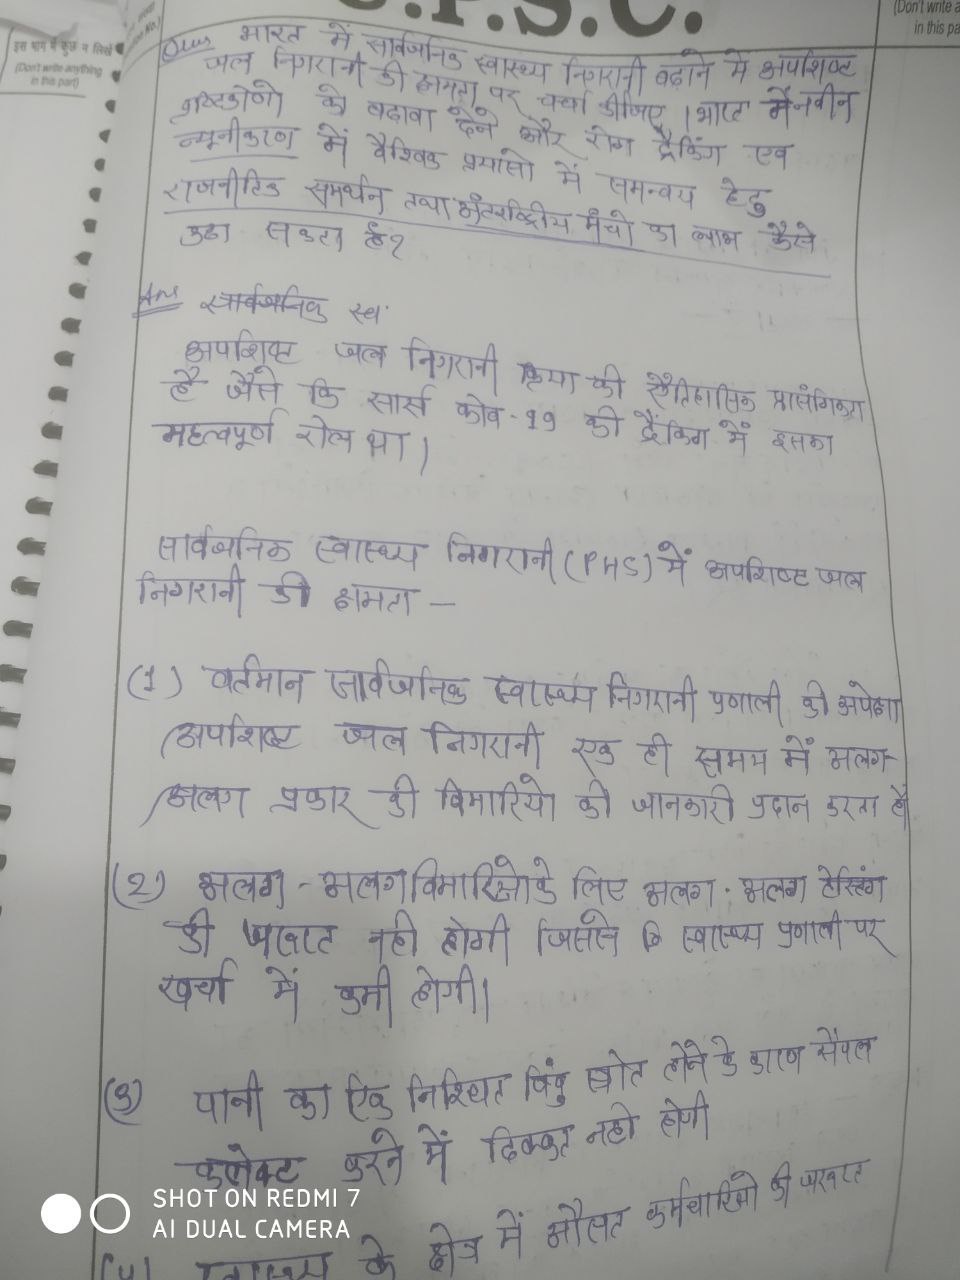 U.P.S.C.
इस भाग में कुछ न लिखें
(Don't write anything
in this part)
(Don't write a
in this pa
Ques भारत में सार्वजनिक स्वास्थ्य निगरानी बढ़ाने में अपशिष्ट
जल निगरानी की क्षमता पर चर्चा कीजिए। भारत में नवीन
दृष्टिकोणो को बढ़ावा देने और रोग ट्रैकिंग एवं
न्यूनीकरण में वैश्विक प्रयासो में समन्वय हेतु
राजनीतिक समर्थन तथा अंतर्राष्ट्रीय मंचो का लाभ कैसे
उठा सकता है?
Ans सार्वजनिक स्व
अपशिष्ट जल निगरानी क्रिया की ऐतिहासिक प्रासंगिकता
है जैसे कि सार्स कोव-19 की ट्रैकिंग में इसका
महत्वपूर्ण रोल था।
सार्वजनिक स्वास्थ्य निगरानी (PHS) में अपशिष्ट जल
निगरानी की क्षमता –
(1) वर्तमान सार्वजनिक स्वास्थ्य निगरानी प्रणाली की अपेक्षा
अपशिष्ट जल निगरानी एक ही समय में अलग-
अलग प्रकार की बिमारियो की जानकारी प्रदान करता है
(2) अलग-अलग बिमारिओ के लिए अलग-अलग टेस्टिंग
की जरूरत नही होगी जिससे कि स्वास्थ्य प्रणाली पर
खर्चा में कमी होगी।
(3) पानी का एक निश्चित बिंदु स्रोत होने के कारण सैंपल
कलेक्ट करने में दिक्कत नही होगी
(4) स्वास्थ्य के क्षेत्र में औसत कर्मचारिओ की जरूरत
SHOT ON REDMI 7
AI DUAL CAMERA